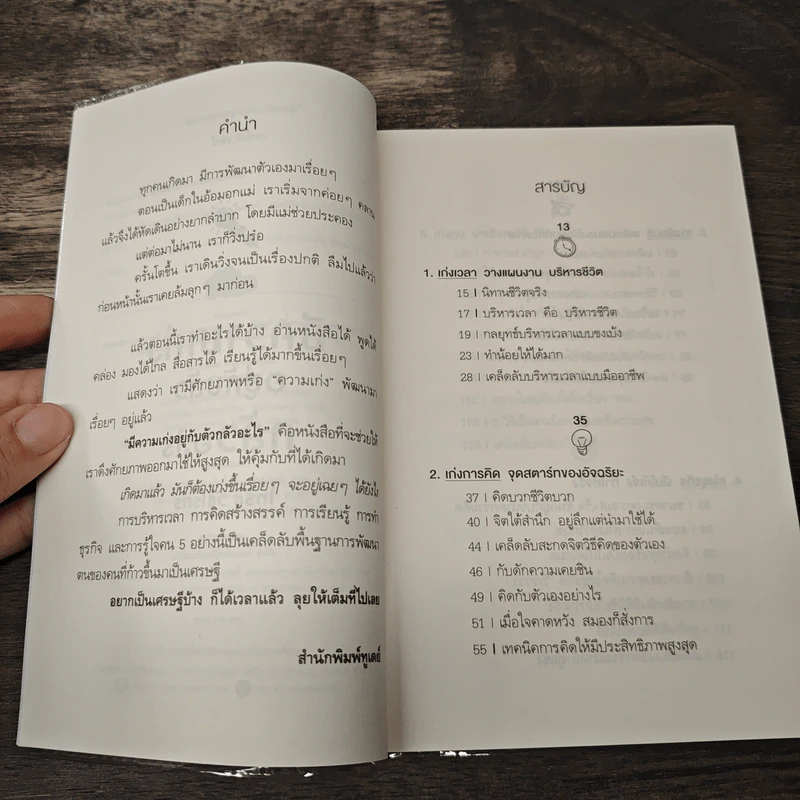 คำนำ
ทุกคนเกิดมา มีการพัฒนาตัวเองมาเรื่อยๆ
ตอนเป็นเด็กในอ้อมอกแม่ เราเริ่มจากค่อยๆ คลาน
แล้วจึงได้หัดเดินอย่างยากลำบาก โดยมีแม่ช่วยประคอง
แต่ต่อมาไม่นาน เราก็วิ่งปร๋อ
ครั้นโตขึ้น เราเดินวิ่งจนเป็นเรื่องปกติ ลืมไปแล้วว่า
ก่อนหน้านั้นเราเคยล้มลุกๆ มาก่อน
แล้วตอนนี้เราทำอะไรได้บ้าง อ่านหนังสือได้ พูดได้
คล่อง มองได้ไกล สื่อสารได้ เรียนรู้ได้มากขึ้นเรื่อยๆ
แสดงว่า เรามีศักยภาพหรือ “ความเก่ง” พัฒนามา
เรื่อยๆ อยู่แล้ว
“มีความเก่งอยู่กับตัวกลัวอะไร” คือหนังสือที่จะช่วยให้
เราดึงศักยภาพออกมาใช้ให้สูงสุด ให้คุ้มกับที่ได้เกิดมา
เกิดมาแล้ว มันก็ต้องเก่งขึ้นเรื่อยๆ จะอยู่เฉยๆ ได้ยังไง
การบริหารเวลา การคิดสร้างสรรค์ การเรียนรู้ การทำ
ธุรกิจ และการรู้ใจคน 5 อย่างนี้เป็นเคล็ดลับพื้นฐานการพัฒนา
ตนของคนที่ก้าวขึ้นมาเป็นเศรษฐี
อยากเป็นเศรษฐีบ้าง ก็ได้เวลาแล้ว ลุยให้เต็มที่ไปเลย
สำนักพิมพ์ทูเดย์
สารบัญ
13
1. เก่งเวลา วางแผนงาน บริหารชีวิต
15 | นิทานชีวิตจริง
17 | บริหารเวลา คือ บริหารชีวิต
19 | กลยุทธ์บริหารเวลาแบบขงเบ้ง
23 | ทำน้อยให้ได้มาก
28 | เคล็ดลับบริหารเวลาแบบมืออาชีพ
35
2. เก่งการคิด จุดสตาร์ทของอัจฉริยะ
37 | คิดบวกชีวิตบวก
40 | จิตใต้สำนึก อยู่ลึกแต่นำมาใช้ได้
44 | เคล็ดลับสะกดจิตวิธีคิดของตัวเอง
46 | กับดักความเคยชิน
49 | คิดกับตัวเองอย่างไร
51 | เมื่อใจคาดหวัง สมองก็สั่งการ
55 | เทคนิคการคิดให้มีประสิทธิภาพสูงสุด